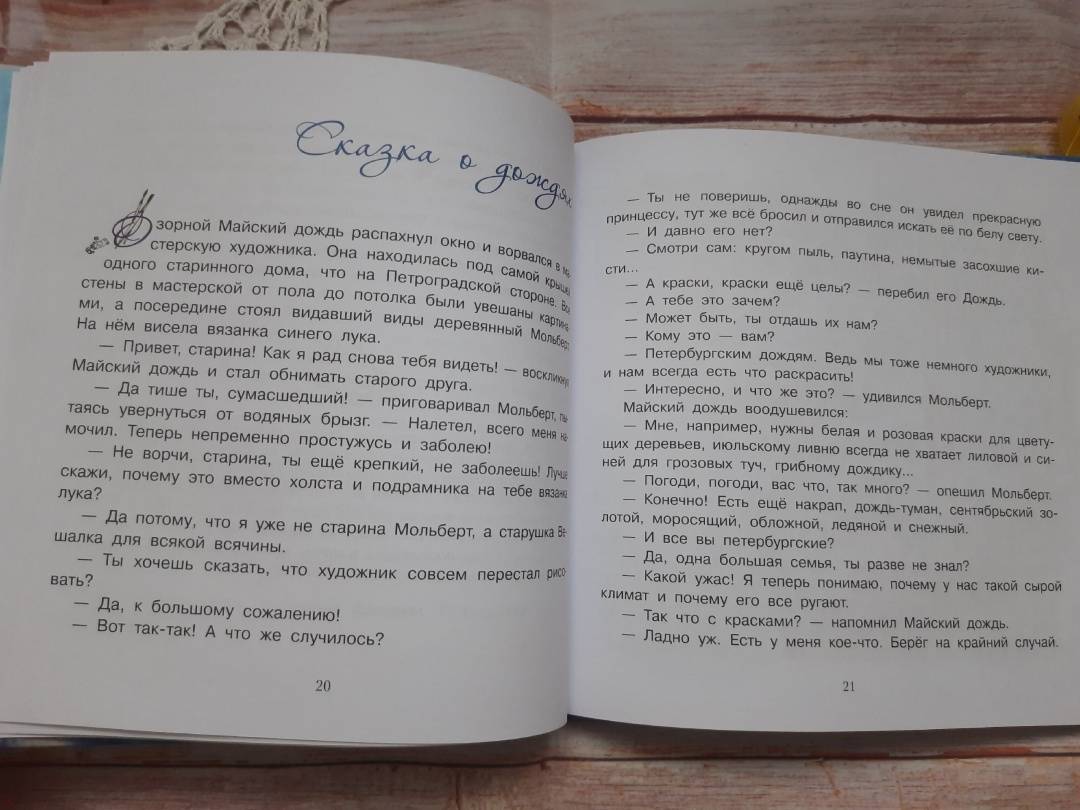 Сказка о дождях
Озорной Майский дождь распахнул окно и ворвался в ма-
стерскую художника. Она находилась под самой крышей
одного старинного дома, что на Петроградской стороне. Все
стены в мастерской от пола до потолка были увешаны картина-
ми, а посередине стоял видавший виды деревянный Мольберт.
На нём висела вязанка синего лука.
— Привет, старина! Как я рад снова тебя видеть! — воскликнул
Майский дождь и стал обнимать старого друга.
— Да тише ты, сумасшедший! — приговаривал Мольберт, пы-
таясь увернуться от водяных брызг. — Налетел, всего меня на-
мочил. Теперь непременно простужусь и заболею!
— Не ворчи, старина, ты ещё крепкий, не заболеешь! Лучше
скажи, почему это вместо холста и подрамника на тебе вязанка
лука?
— Да потому, что я уже не старина Мольберт, а старушка Ве-
шалка для всякой всячины.
— Ты хочешь сказать, что художник совсем перестал рисо-
вать?
— Да, к большому сожалению!
— Вот так-так! А что же случилось?
20
— Ты не поверишь, однажды во сне он увидел прекрасную
принцессу, тут же всё бросил и отправился искать её по белу свету.
— И давно его нет?
— Смотри сам: кругом пыль, паутина, немытые засохшие ки-
сти...
— А краски, краски ещё целы? — перебил его Дождь.
— А тебе это зачем?
— Может быть, ты отдашь их нам?
— Кому это — вам?
— Петербургским дождям. Ведь мы тоже немного художники,
и нам всегда есть что раскрасить!
— Интересно, и что же это? — удивился Мольберт.
Майский дождь воодушевился:
— Мне, например, нужны белая и розовая краски для цвету-
щих деревьев, июльскому ливню всегда не хватает лиловой и си-
ней для грозовых туч, грибному дождику...
— Погоди, погоди, вас что, так много? — опешил Мольберт.
— Конечно! Есть ещё накрап, дождь-туман, сентябрьский зо-
лотой, моросящий, обложной, ледяной и снежный.
— И все вы петербургские?
— Да, одна большая семья, ты разве не знал?
— Какой ужас! Я теперь понимаю, почему у нас такой сырой
климат и почему его все ругают.
— Так что с красками? — напомнил Майский дождь.
— Ладно уж. Есть у меня кое-что. Берёг на крайний случай.
21